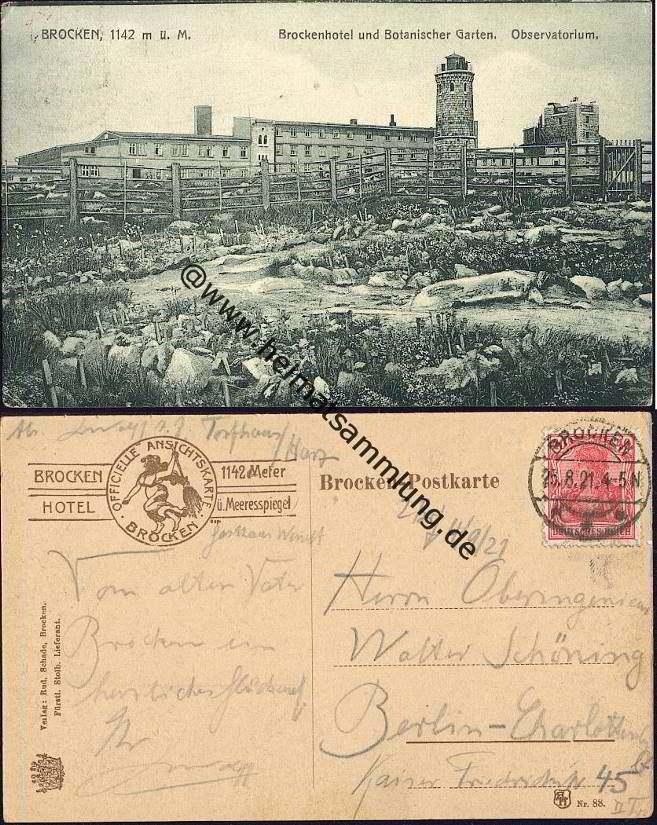 BROCKEN, 1142 m ü. M.
Brockenhotel und Botanischer Garten. Observatorium.
@www.heimatsammlung.de
Torfhaus
Harz
BROCKEN
HOTEL
OFFICIELLE ANSICHTSKARTE
BROCKEN
1142 Meter
ü. Meeresspiegel
Brocken-Postkarte
BROCKEN
25.8.21.4-5N
DEUTSCHES REICH
Vom alten Vater
Brocken ein
herzliches Glückauf
Ihr
Herrn Oberingenieur
Walter Schöning
Berlin-Charlottenbg
Kaiser Friedrichstr 45
Verlag: Rud. Schade, Brocken.
Fürstl. Stolb. Lieferant.
Nr. 88.